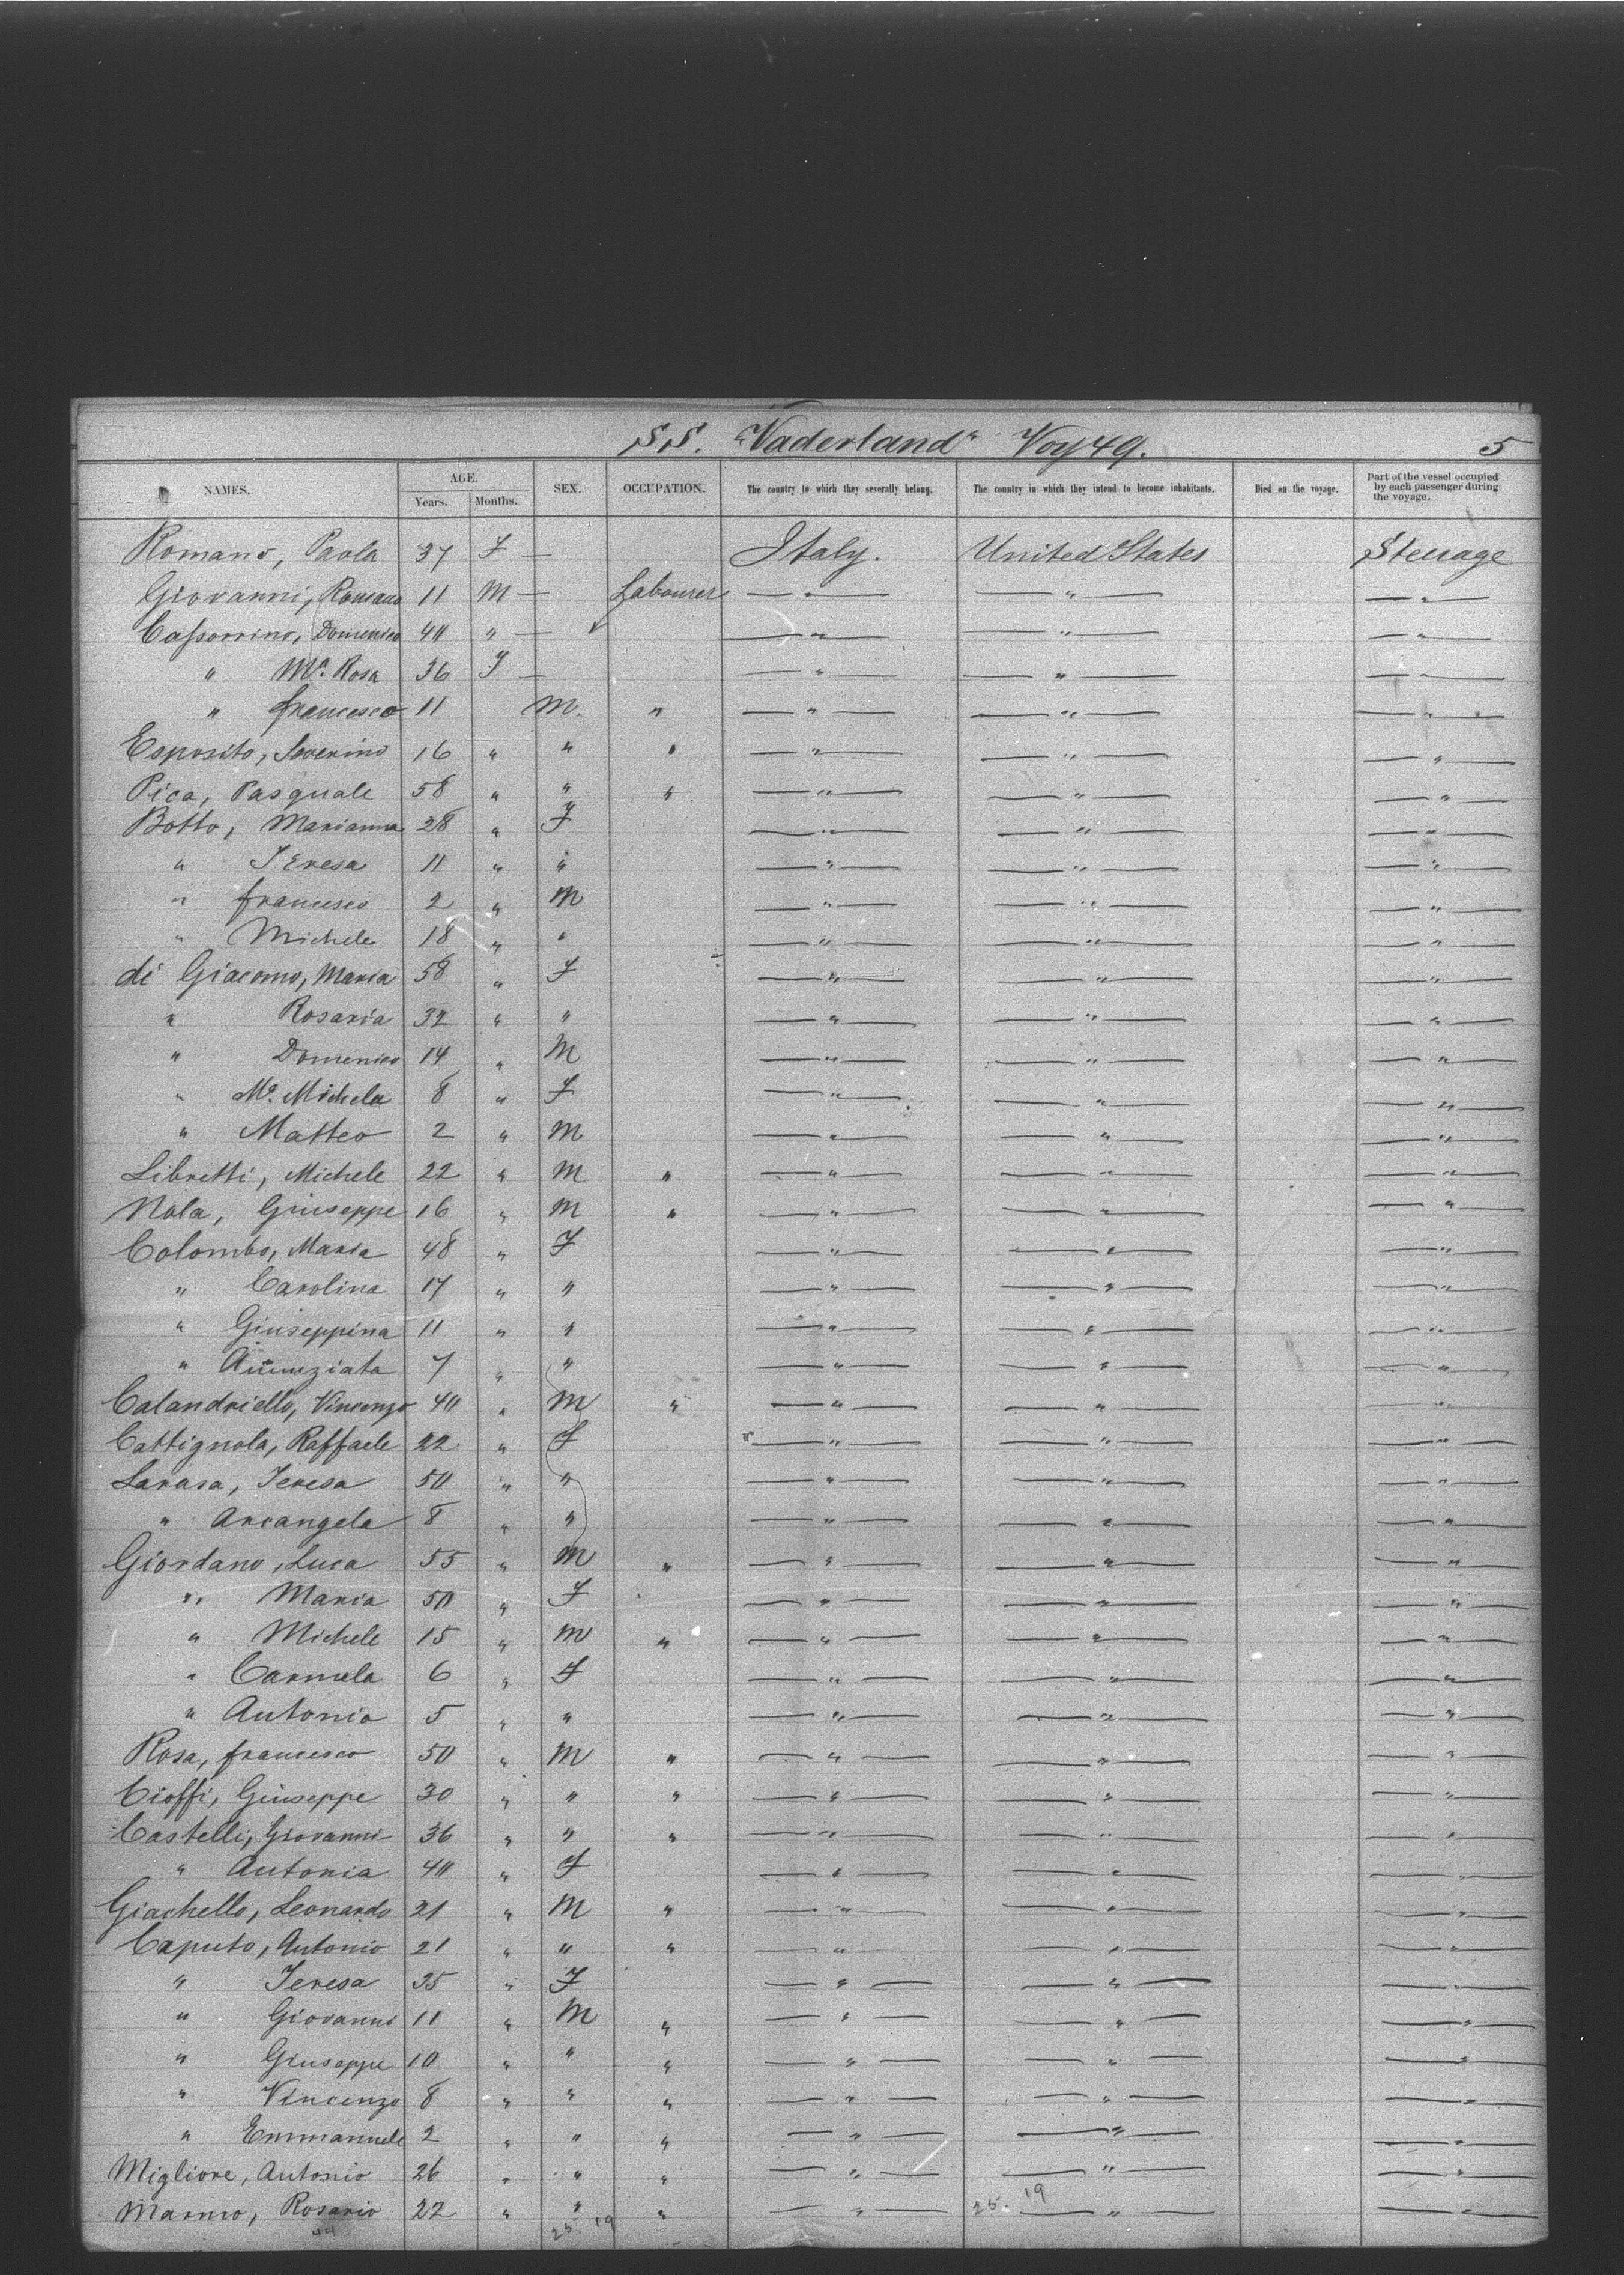 SS. "Vaderland" Voy 49. 5
NAMES. AGE. Years. Months. SEX. OCCUPATION. The country to which they severally belong. The country in which they intend to become inhabitants. Died on the voyage. Part of the vessel occupied by each passenger during the voyage.
Romano, Paola 37 F — Italy. United States Steerage
Giovanni, Romano 11 M — Labourer — " — — " — — " —
Domenico 40 " — — " — — " — — " —
" Mª. Rosa 36 F — — " — — " — — " —
" francesco 11 M. " — " — — " — — " —
Esposito, Severino 16 " " " — " — — " — — " —
Pica, Pasquale 58 " " " — " — — " — — " —
Botto, Marianna 28 " F — " — — " — — " —
" Teresa 11 " " — " — — " — — " —
" francesco 2 " M — " — — " — — " —
" Michele 18 " " — " — — " — — " —
di Giacomo, Maria 58 " F — " — — " — — " —
" Rosaria 32 " " — " — — " — — " —
" Domenico 14 " M — " — — " — — " —
" Mª. Michela 8 " F — " — — " — — " —
" Matteo 2 " M — " — — " — — " —
Libretti, Michele 22 " M " — " — — " — — " —
Nola, Giuseppe 16 " M " — " — — " — — " —
Colombo, Maria 48 " F — " — — " — — " —
" Carolina 17 " " — " — — " — — " —
" Giuseppina 11 " " — " — — " — — " —
" Annunziata 7 " " — " — — " — — " —
Calandriello, Vincenzo 40 " M " — " — — " — — " —
Cattignola, Raffaele 22 " F — " — — " — — " —
Larasa, Teresa 50 " " — " — — " — — " —
" Arcangela 8 " " — " — — " — — " —
Giordano, Luca 55 " M " — " — — " — — " —
" Maria 50 " F — " — — " — — " —
" Michele 15 " M " — " — — " — — " —
" Carmela 6 " F — " — — " — — " —
" Antonia 5 " " — " — — " — — " —
Rosa, francesco 50 " M " — " — — " — — " —
Cioffi, Giuseppe 30 " " " — " — — " — — " —
Castelli, Giovanni 36 " " " — " — — " — — " —
" Antonia 40 " F — " — — " — — " —
Giachello, Leonardo 21 " M " — " — — " — — " —
Caputo, Antonio 21 " " " — " — — " — — " —
" Teresa 35 " F — " — — " — — " —
" Giovanni 11 " M " — " — — " — — " —
" Giuseppe 10 " " " — " — — " — — " —
" Vincenzo 8 " " " — " — — " — — " —
" Emmanuele 2 " " " — " — — " — — " —
Migliore, Antonio 26 " " " — " — — " — — " —
Marmo, Rosario 22 " " " — " — — " — — " —
44 25. 19 25. 19